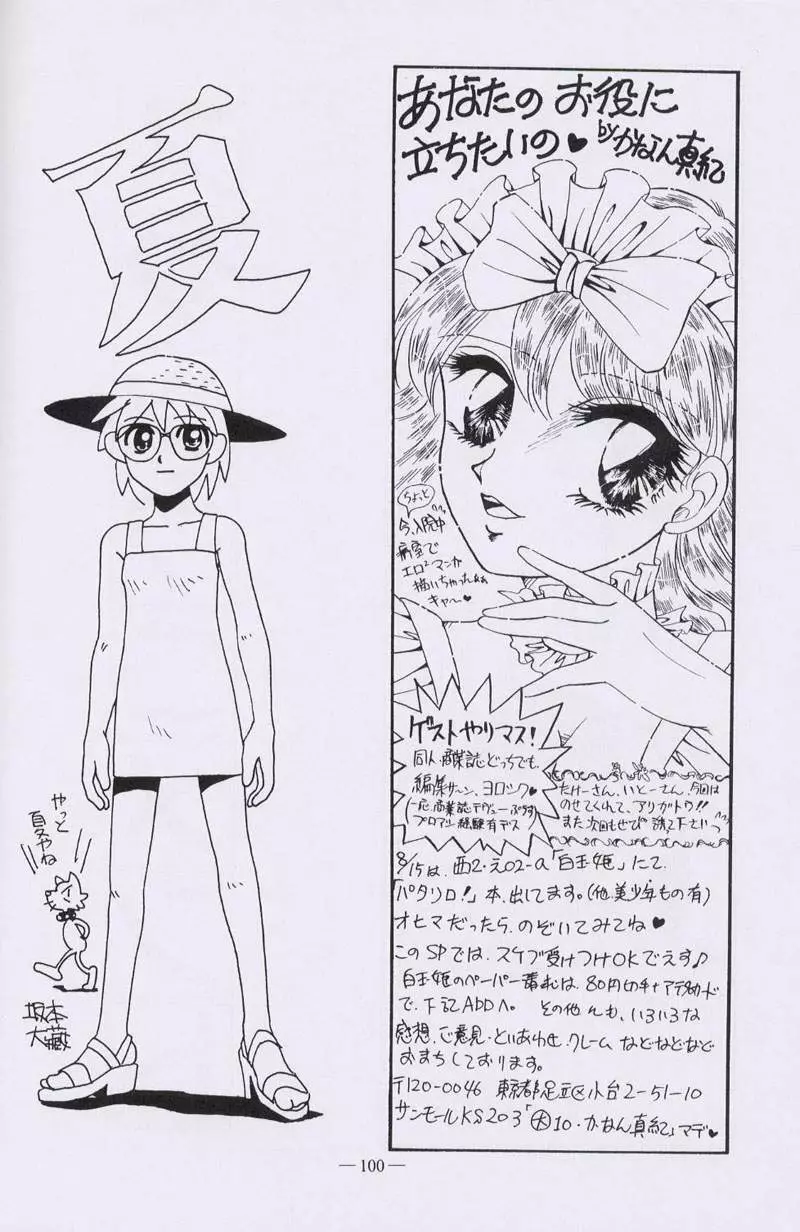 夏
やっと
夏やね
坂本
大蔵
あなたの お役に
立ちたいの♥ by かなん真紀
ちょっと
今、入院中
病室で
エロマンガ
描いちゃったわぁ
キャ〜♥
ゲストやりマス!
同人・商業誌・どっちでも、
編集サーン、ヨロシク♥
(一応、商業誌デヴューぷらす
プロアシ経験有デス
たけーさん、いとーさん、今回は
のせてくれて、アリガトウ!!
また次回もぜひ 誘て下さいっ
8/15は、西2・え02-a「白玉姫」にて
「パタリロ!」本、出してます。(他、美少年もの有)
オヒマだったら、のぞいてみてね♥
このSPでは、スケブ受けつけOKでえす♪
白玉姫のペーパー希望は、80円切手+アテ名カード
で、下記ADDへ。 その他んも、いろいろな
感想、ご意見・といあわせ・クレーム などなどなど
おまちしております。
〒120-0046 東京都足立区小台2-51-10
サンモールKS203「大10・かなん真紀」マデ♥
—100—